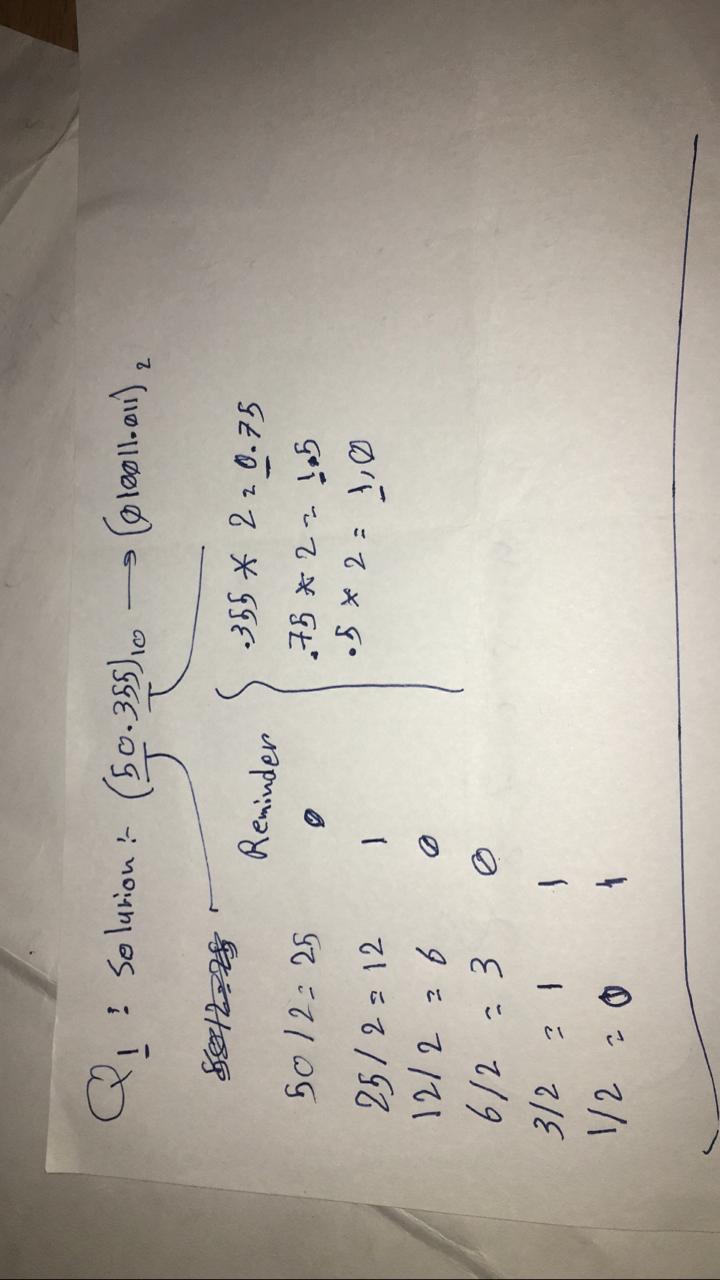 Q1: Solution :- (50.355)10 → (010011.011)2
50/2=25
Reminder
50/2=25 0
25/2=12 1
12/2=6 0
6/2=3 0
3/2=1 1
1/2=0 1
.355*2=0.75
.75*2=1.5
.5*2=1.0